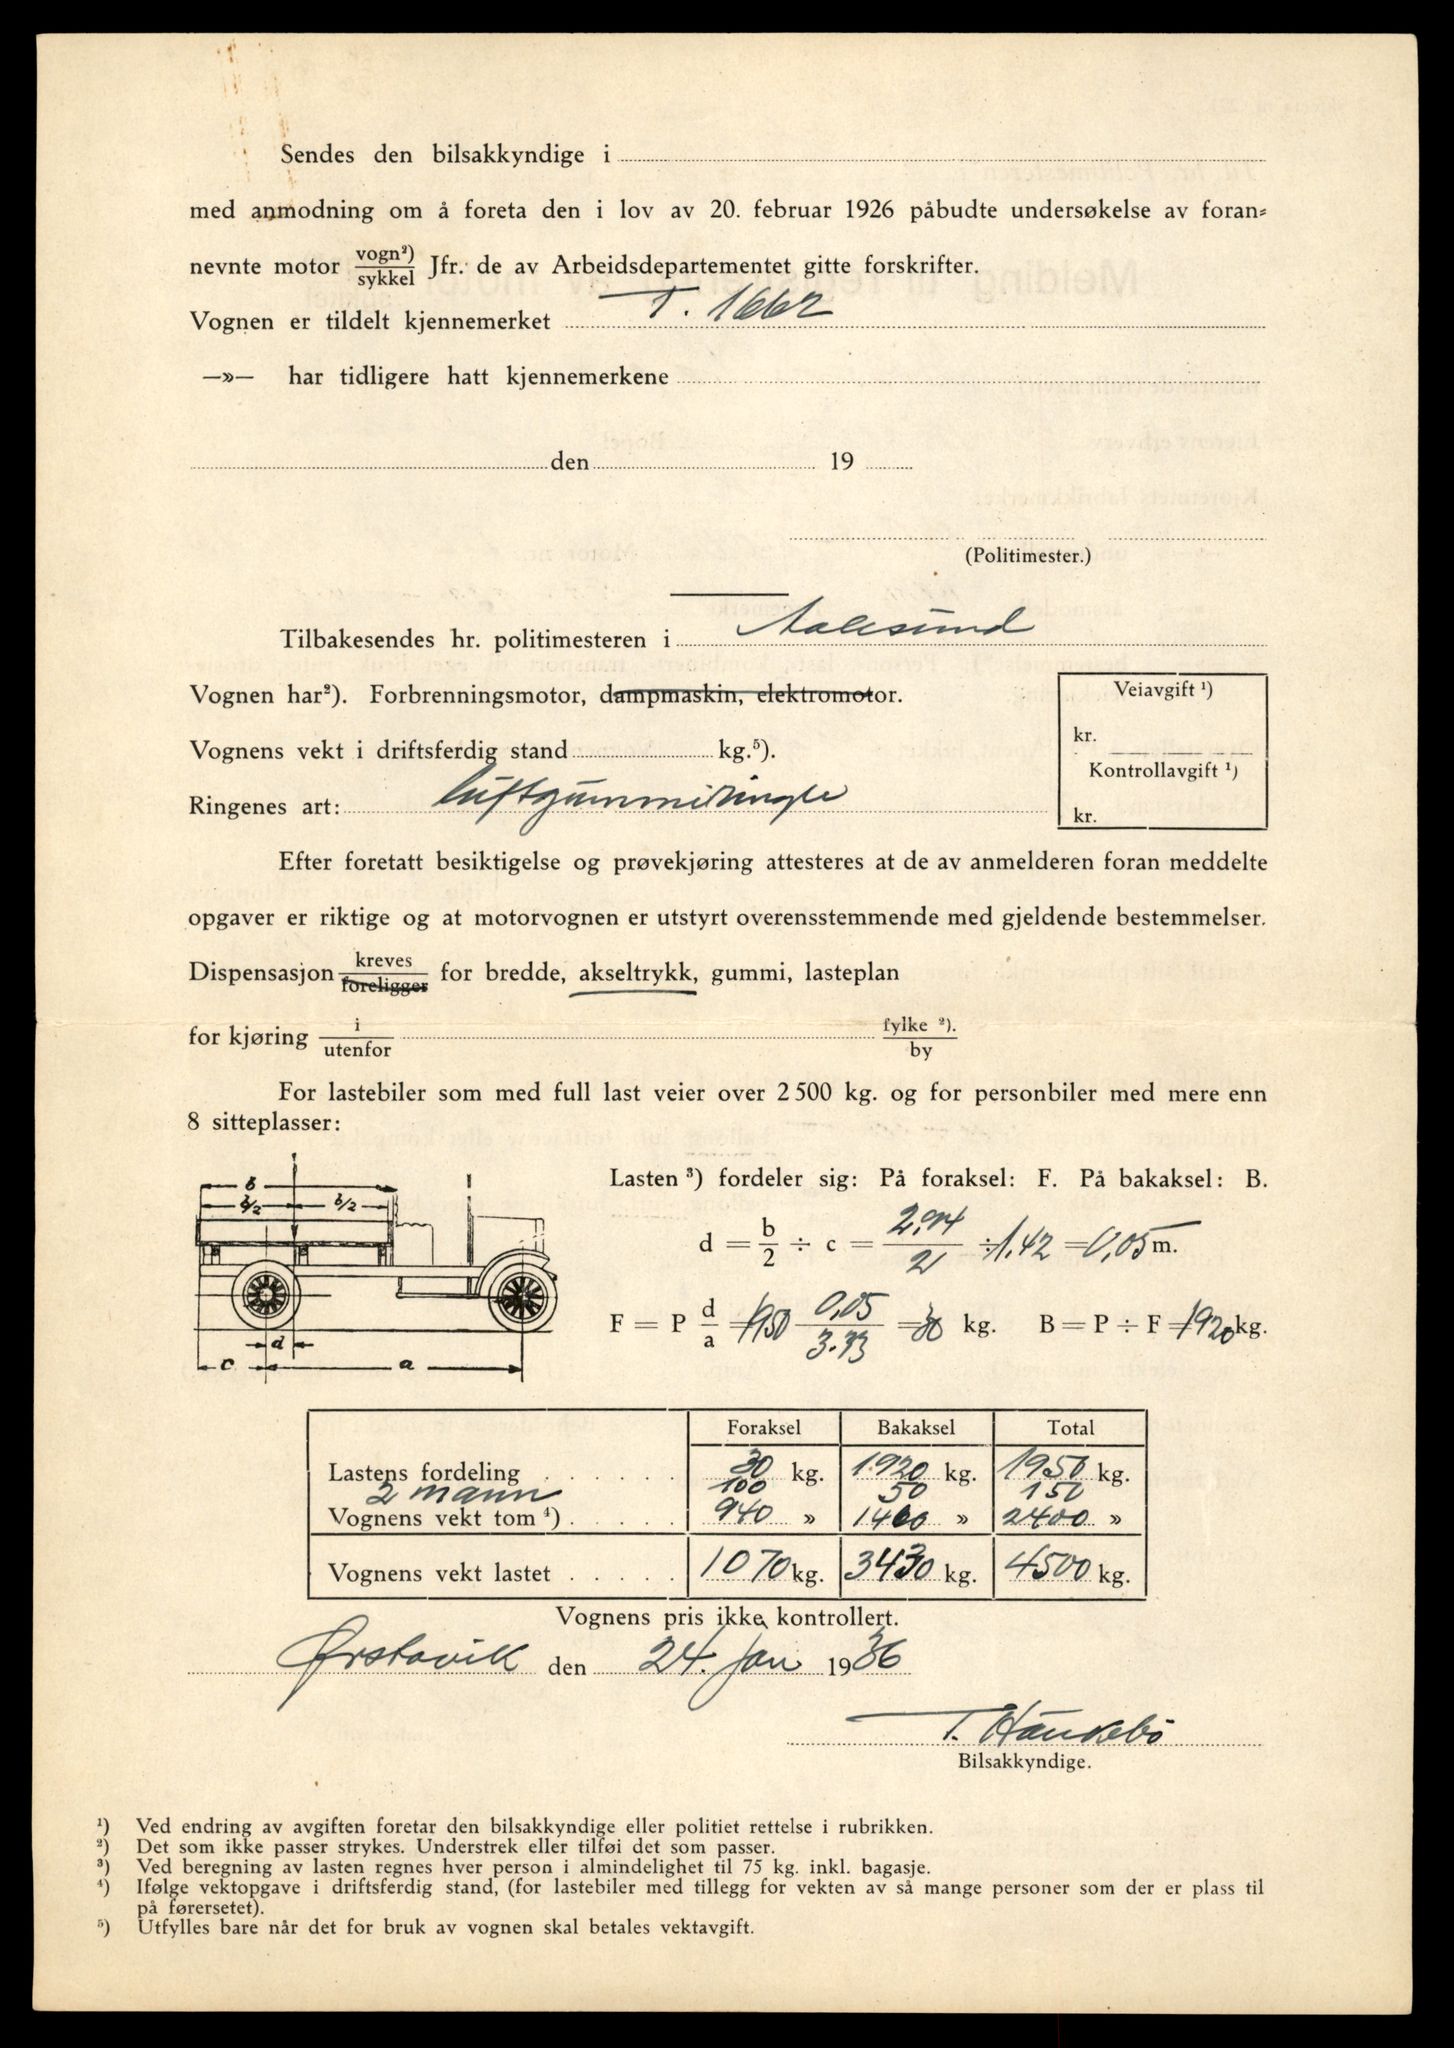 Sendes den bilsakkyndige i
med anmodning om å foreta den i lov av 20. februar 1926 påbudte undersøkelse av foran=
nevnte motor vogn²)/sykkel Jfr. de av Arbeidsdepartementet gitte forskrifter.
Vognen er tildelt kjennemerket T. 1662
—»— har tidligere hatt kjennemerkene
den 19
(Politimester.)
Tilbakesendes hr. politimesteren i Aalesund
Vognen har²). Forbrenningsmotor, dampmaskin, elektromotor.
Veiavgift ¹)
kr.
Vognens vekt i driftsferdig stand kg.⁵).
Kontrollavgift ¹)
kr.
Ringenes art: luftgummiringer
Efter foretatt besiktigelse og prøvekjøring attesteres at de av anmelderen foran meddelte
opgaver er riktige og at motorvognen er utstyrt overensstemmende med gjeldende bestemmelser.
Dispensasjon kreves/foreligger for bredde, akseltrykk, gummi, lasteplan
for kjøring i/utenfor fylke ²)./by
For lastebiler som med full last veier over 2 500 kg. og for personbiler med mere enn
8 sitteplasser:
b
b/2 b/2
d
c a
Lasten ³) fordeler sig: På foraksel: F. På bakaksel: B.
d = b/2 ÷ c = 2,94/2 ÷ 1,42 = 0,05 m.
F = P d/a = 1950 0,05/3.33 = 30 kg. B = P ÷ F = 1920 kg.
Foraksel Bakaksel Total
Lastens fordeling . . . . . . 30 kg. 1920 kg. 1950 kg.
2 mann 100 50 150
Vognens vekt tom ⁴) . . . . . 940 » 1460 » 2400 »
Vognens vekt lastet . . . . . 1070 kg. 3430 kg. 4500 kg.
Vognens pris ikke kontrollert.
Ørstavik den 24. jan 1936
T. Haukebø
Bilsakkyndige.
¹) Ved endring av avgiften foretar den bilsakkyndige eller politiet rettelse i rubrikken.
²) Det som ikke passer strykes. Understrek eller tilføi det som passer.
³) Ved beregning av lasten regnes hver person i almindelighet til 75 kg. inkl. bagasje.
⁴) Ifølge vektopgave i driftsferdig stand, (for lastebiler med tillegg for vekten av så mange personer som der er plass til
på førersetet).
⁵) Utfylles bare når det for bruk av vognen skal betales vektavgift.